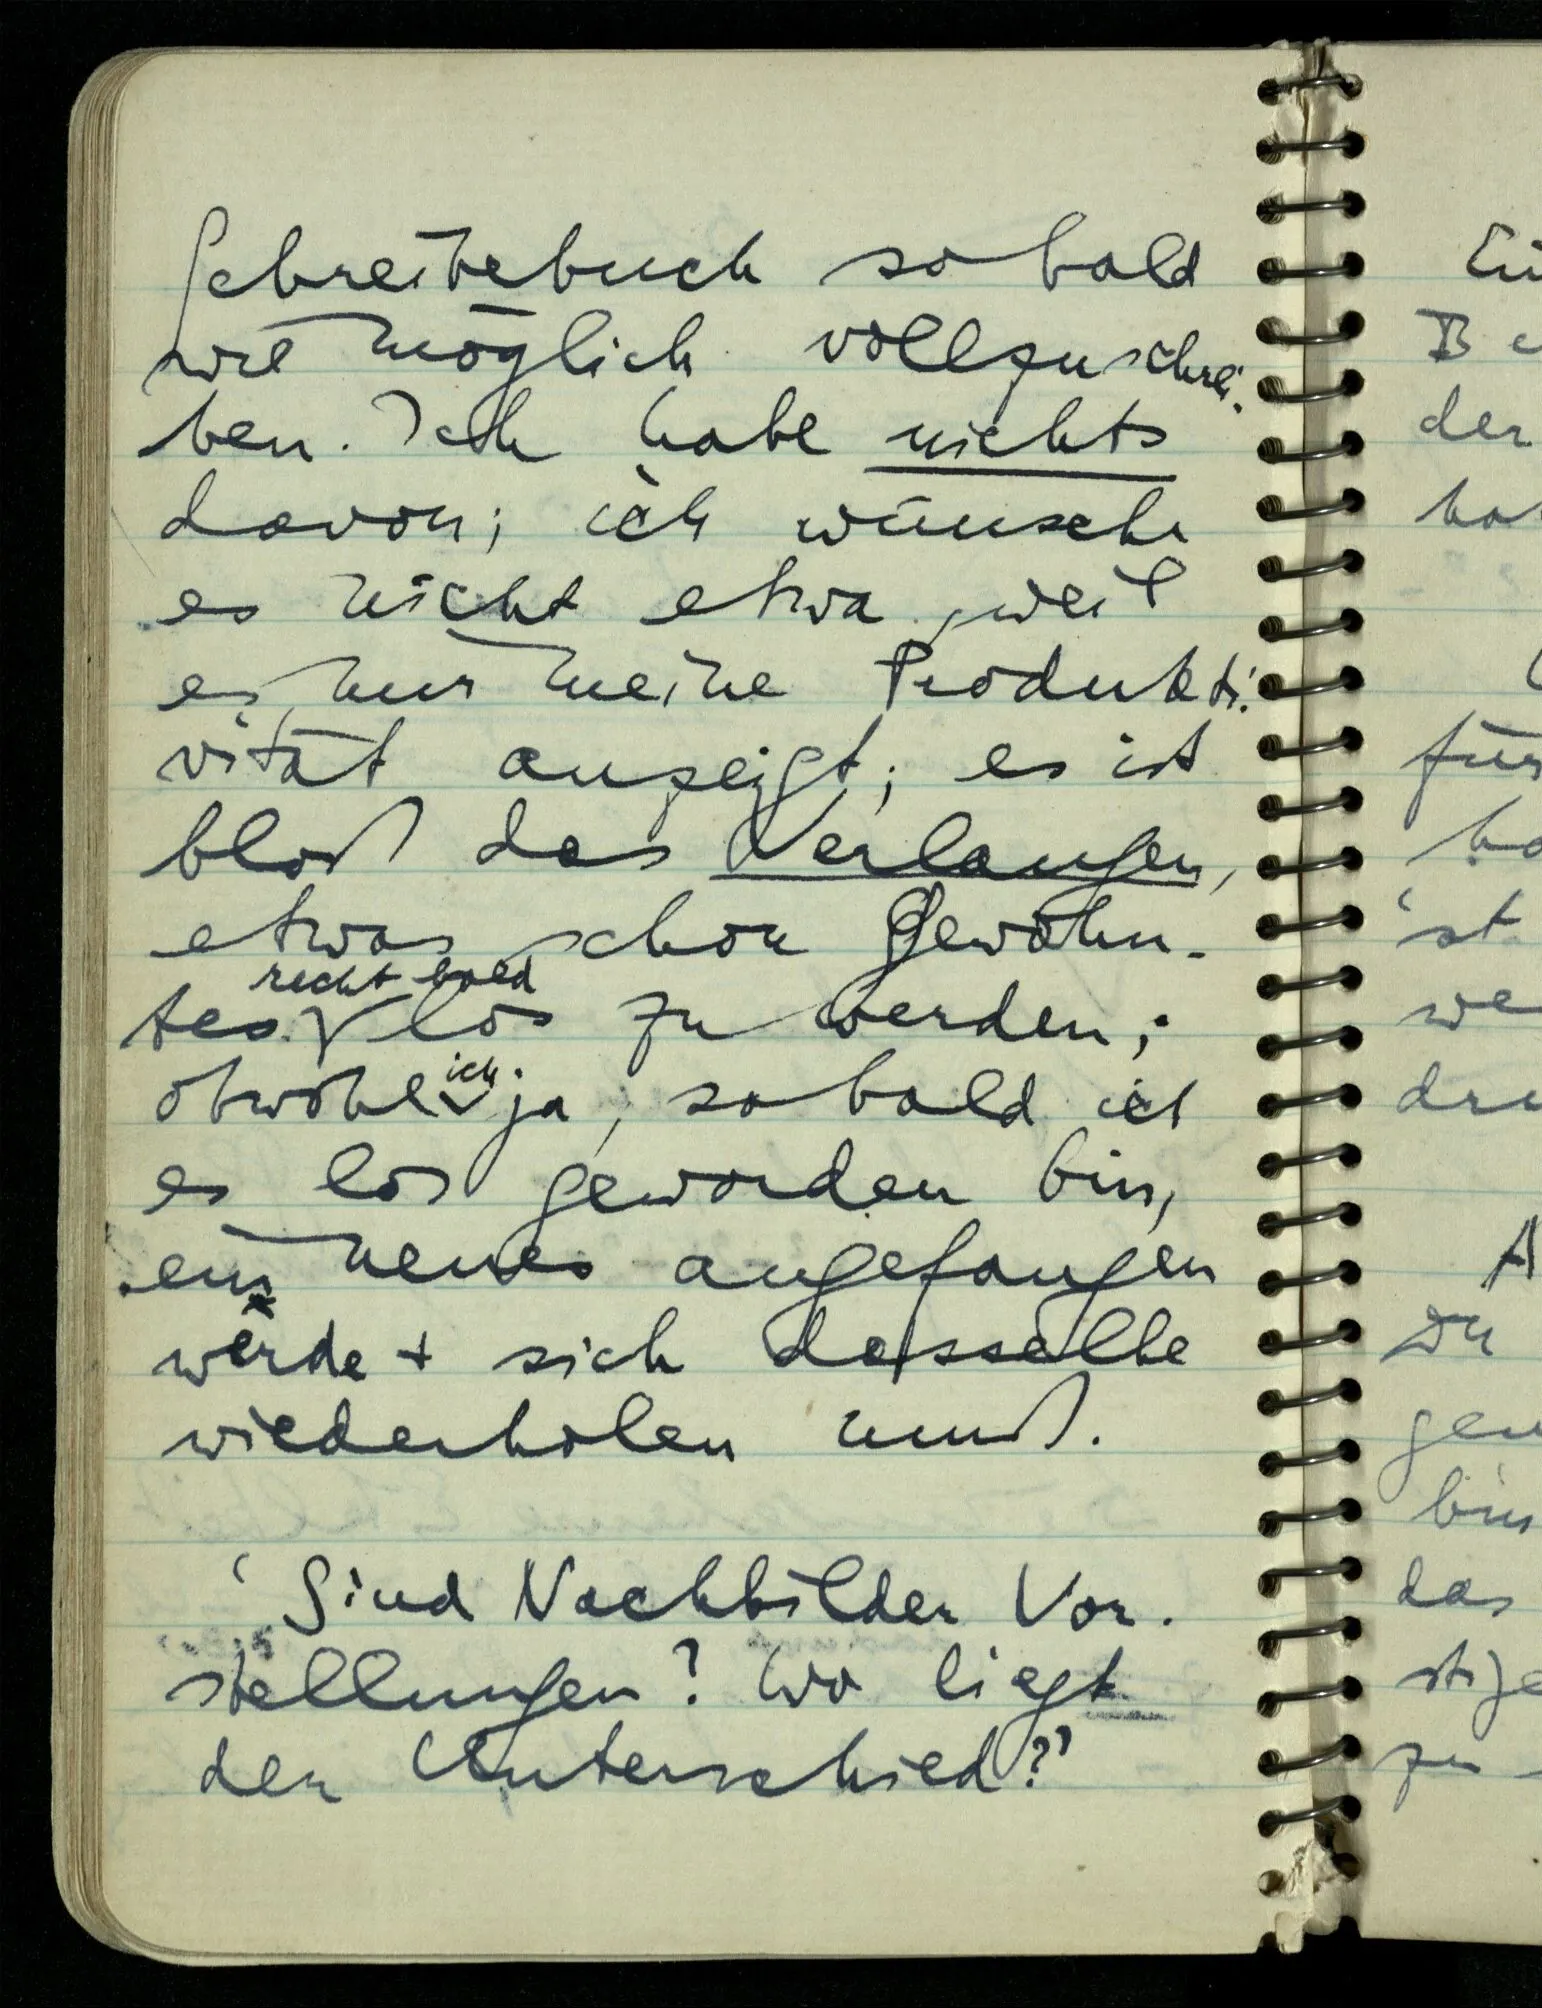 Schreibebuch so bald
wie möglich vollzuschrei-
ben. Ich habe nichts
davon; ich wünsche
es nicht etwa, weil
es nur meine Produkti-
vität anzeigt; es ist
bloß das Verlangen,
etwas schon Gewohn-
recht bald
tes los zu werden;
obwohl ich ja, sobald ich
es los geworden bin,
ein neues angefangen
werde + sich dasselbe
wiederholen muß.
'Sind Nachbilder Vor-
stellungen? Wo liegt
der Unterschied?'
der
für
'st
das
zu